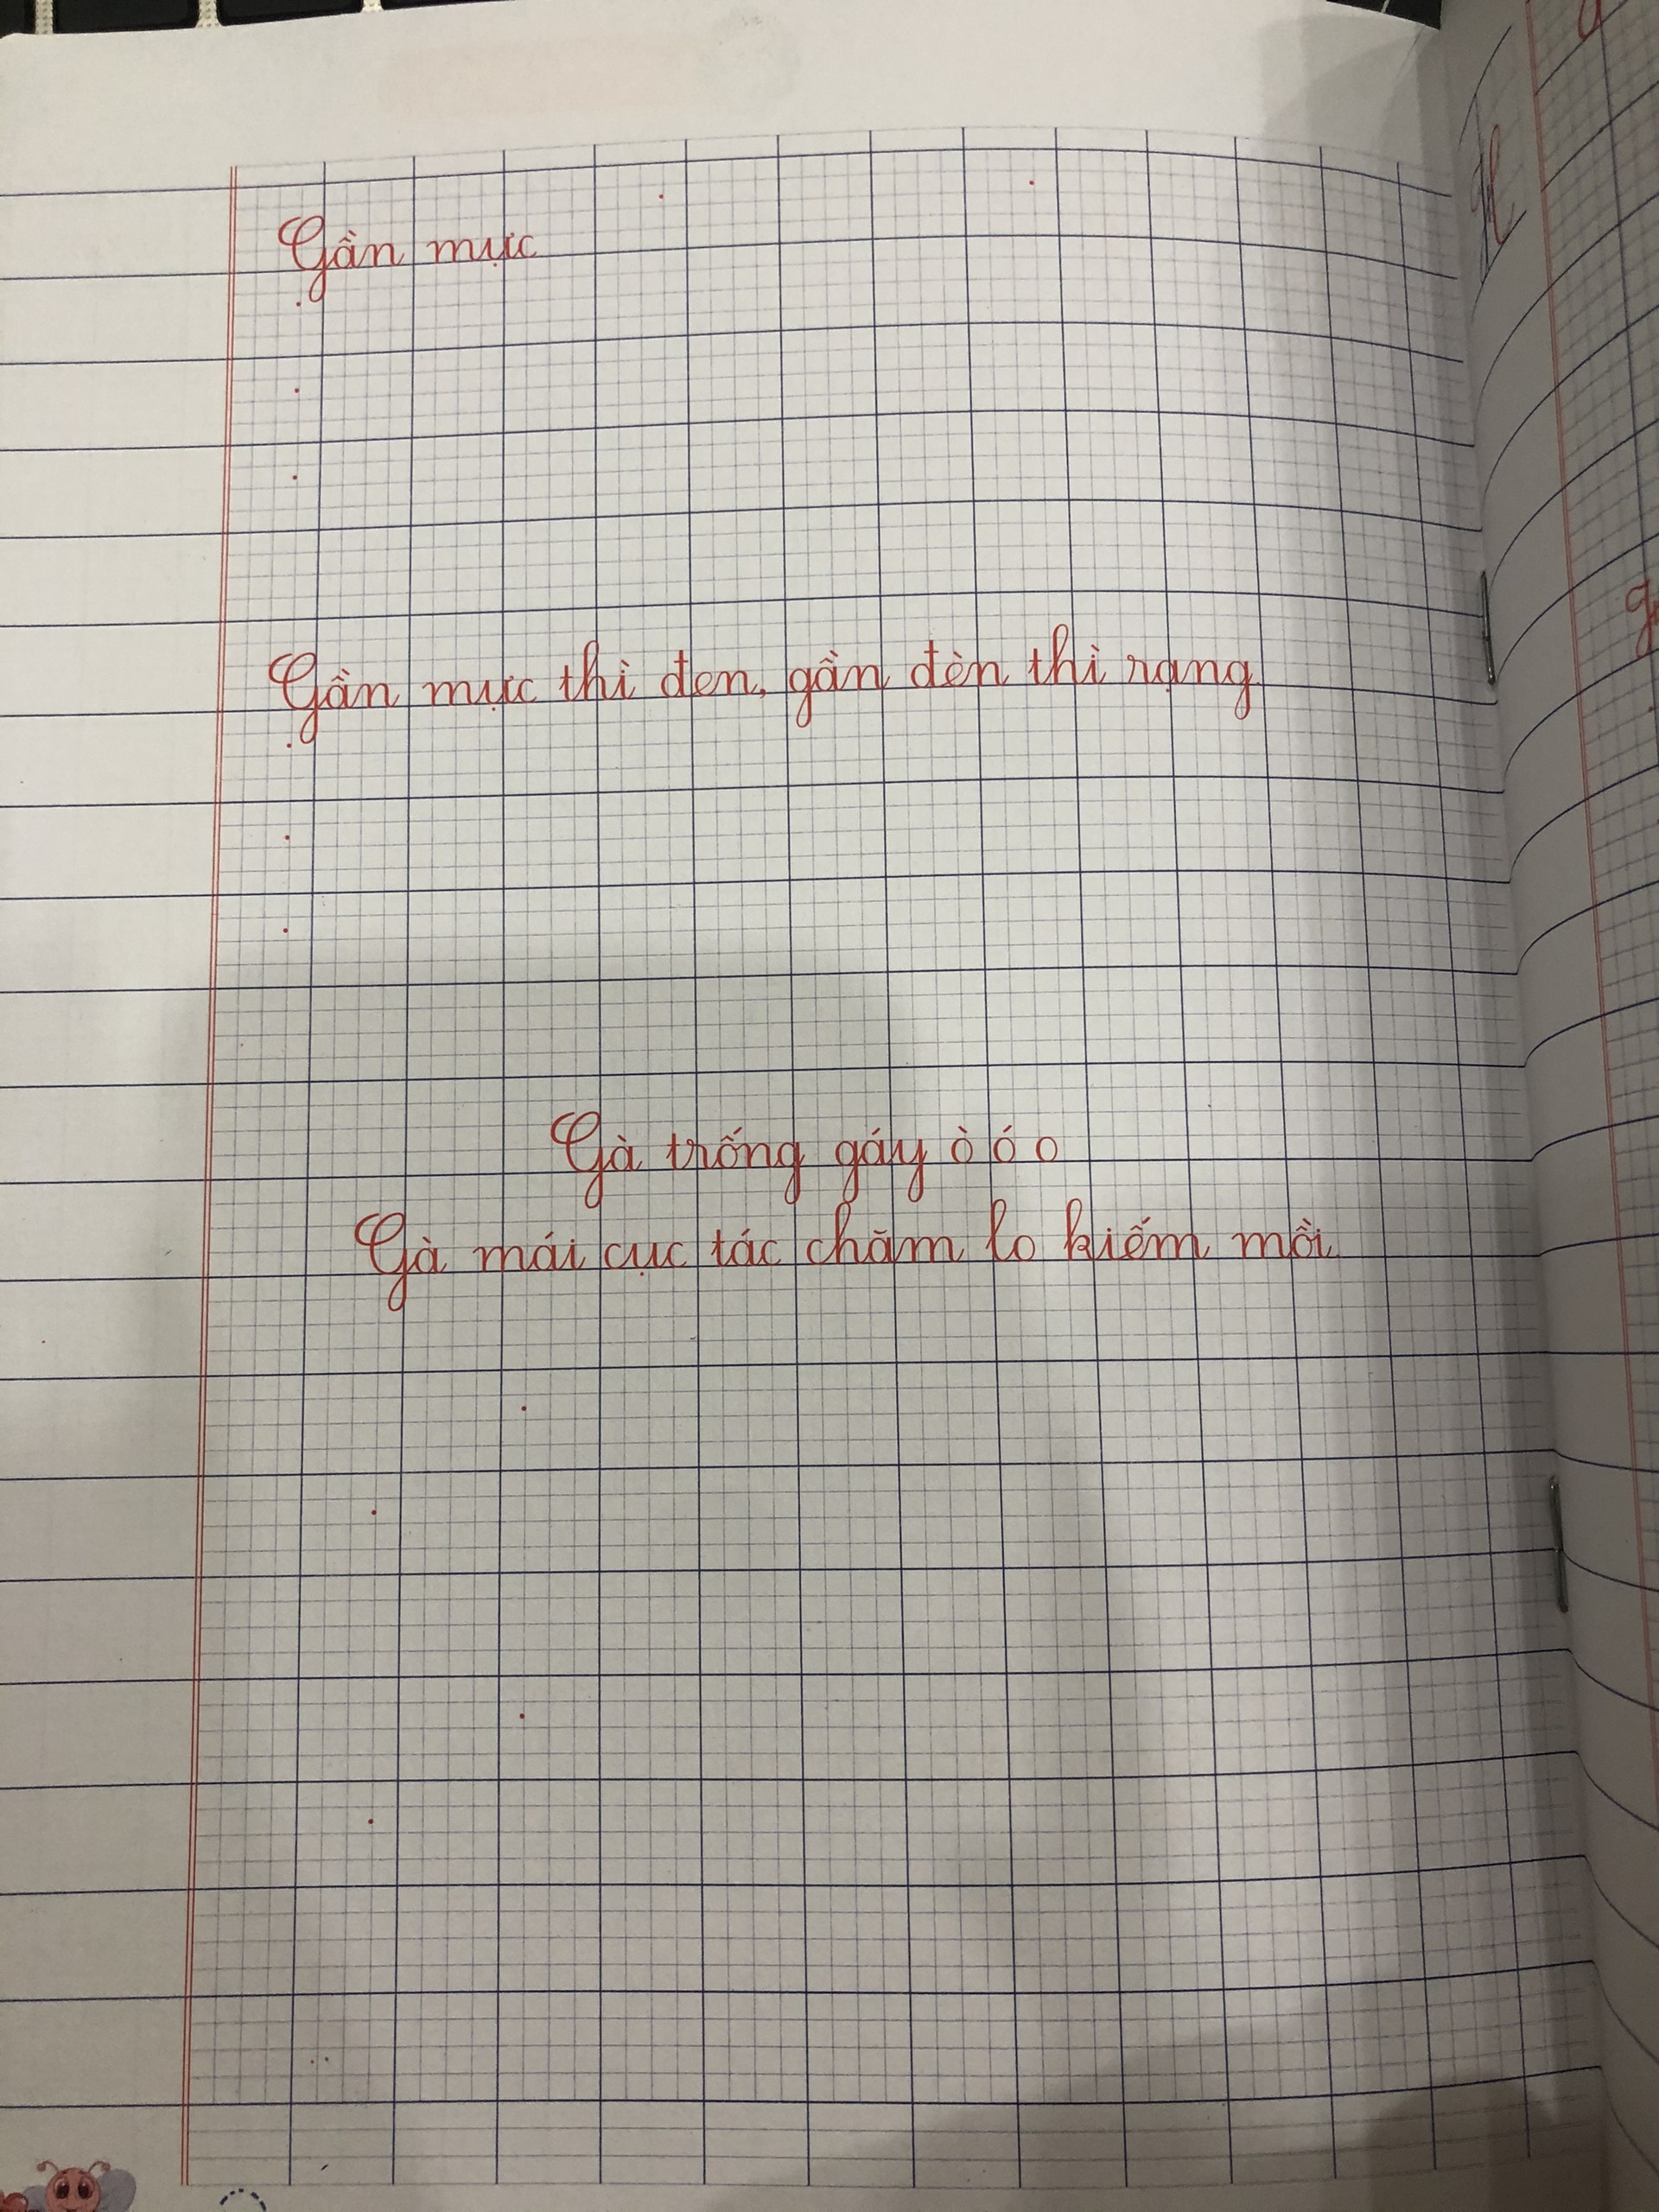 Gần mực
Gần mực thì đen, gần đèn thì rạng
Gà trống gáy ò ó o
Gà mái cục tác chăm lo kiếm mồi